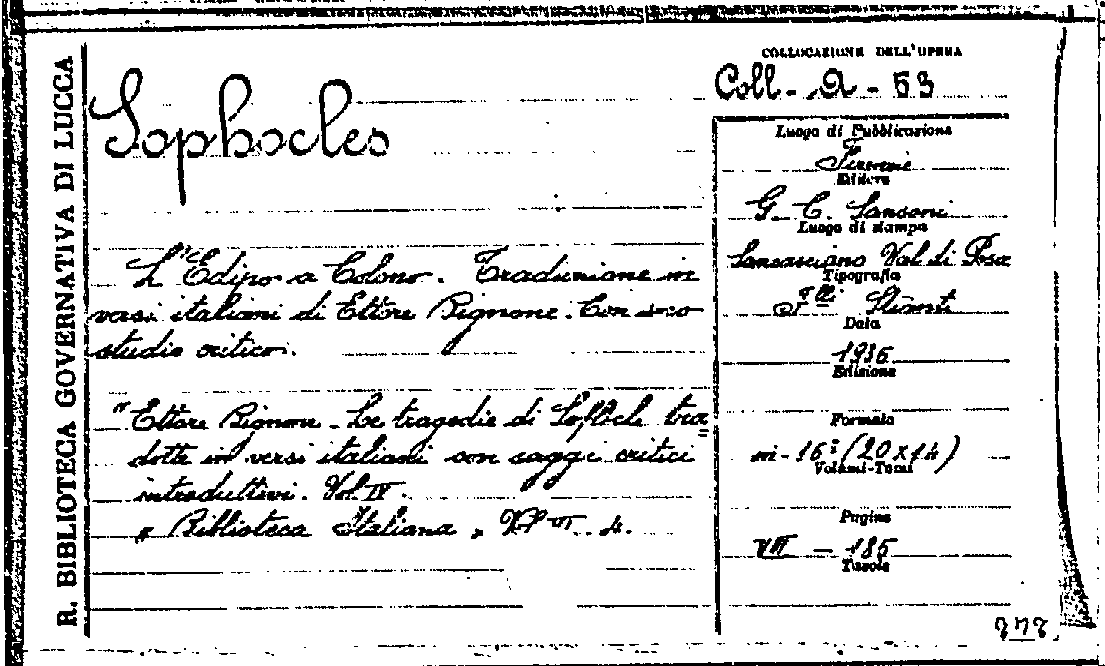 R. BIBLIOTECA GOVERNATIVA DI LUCCA
COLLOCAZIONE DELL'OPERA
Coll - A - 53
Sophocles
L'Edipo a Colono. Traduzione in
versi italiani di Ettore Bignone. Con uno
studio critico.
"Ettore Bignone - Le tragedie di Sofocle tra=
dotte in versi italiani con saggi critici
introduttivi. Vol. IV.
" Biblioteca Italiana " 4.
Luogo di Pubblicazione
Firenze
Editore
G. C. Sansoni
Luogo di stampa
Sancasciano Val di Pesa
Tipografia
F.lli Stianti
Data
1936
Edizione
Formato
in-16º (20x14)
Volumi-Tomi
Pagine
VIII - 185
Tavole